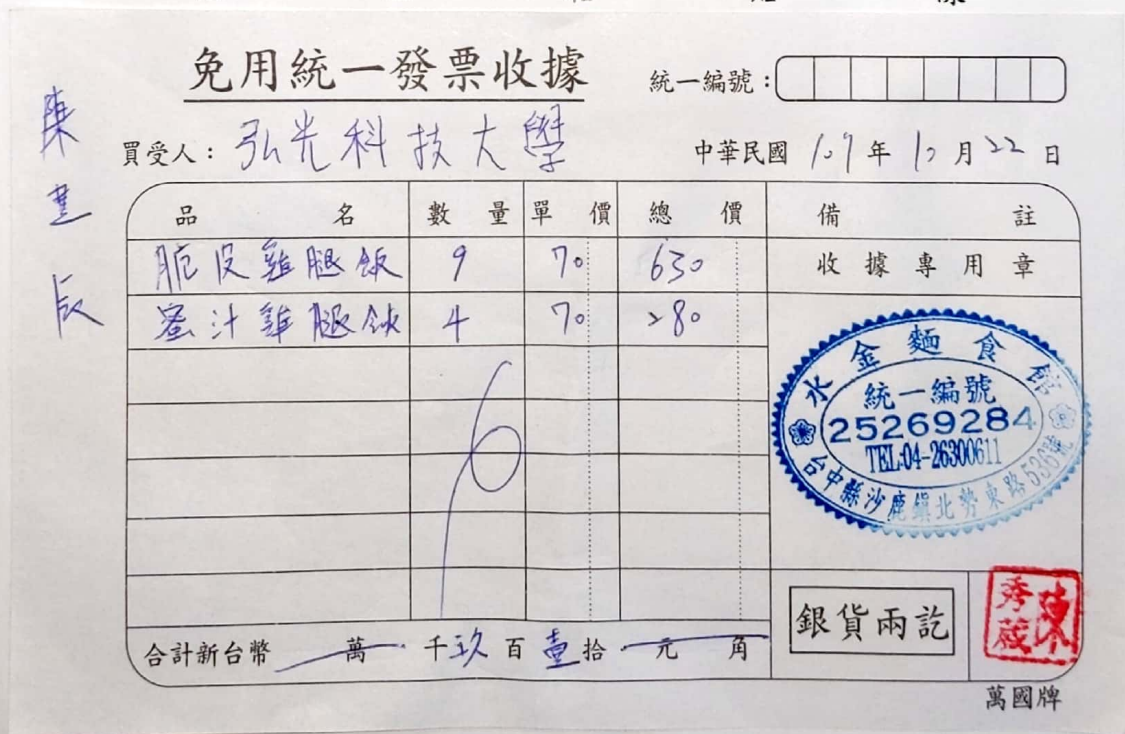 免用統一發票收據
統一編號：
買受人：弘光科技大學
中華民國 109年10月22日
品名 數量 單價 總價 備註
脆皮雞腿飯 9 70 630
收據專用章
蜜汁雞腿飯 4 70 280
水金麵食館
統一編號
25269284
TEL:04-26300611
台中縣沙鹿鎮北勢東路536號
銀貨兩訖
合計新台幣 萬 千玖百壹拾 元 角
萬國牌